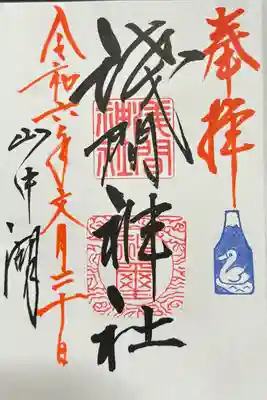 奉拝
浅間神社
令和六年文月二十日
山中湖